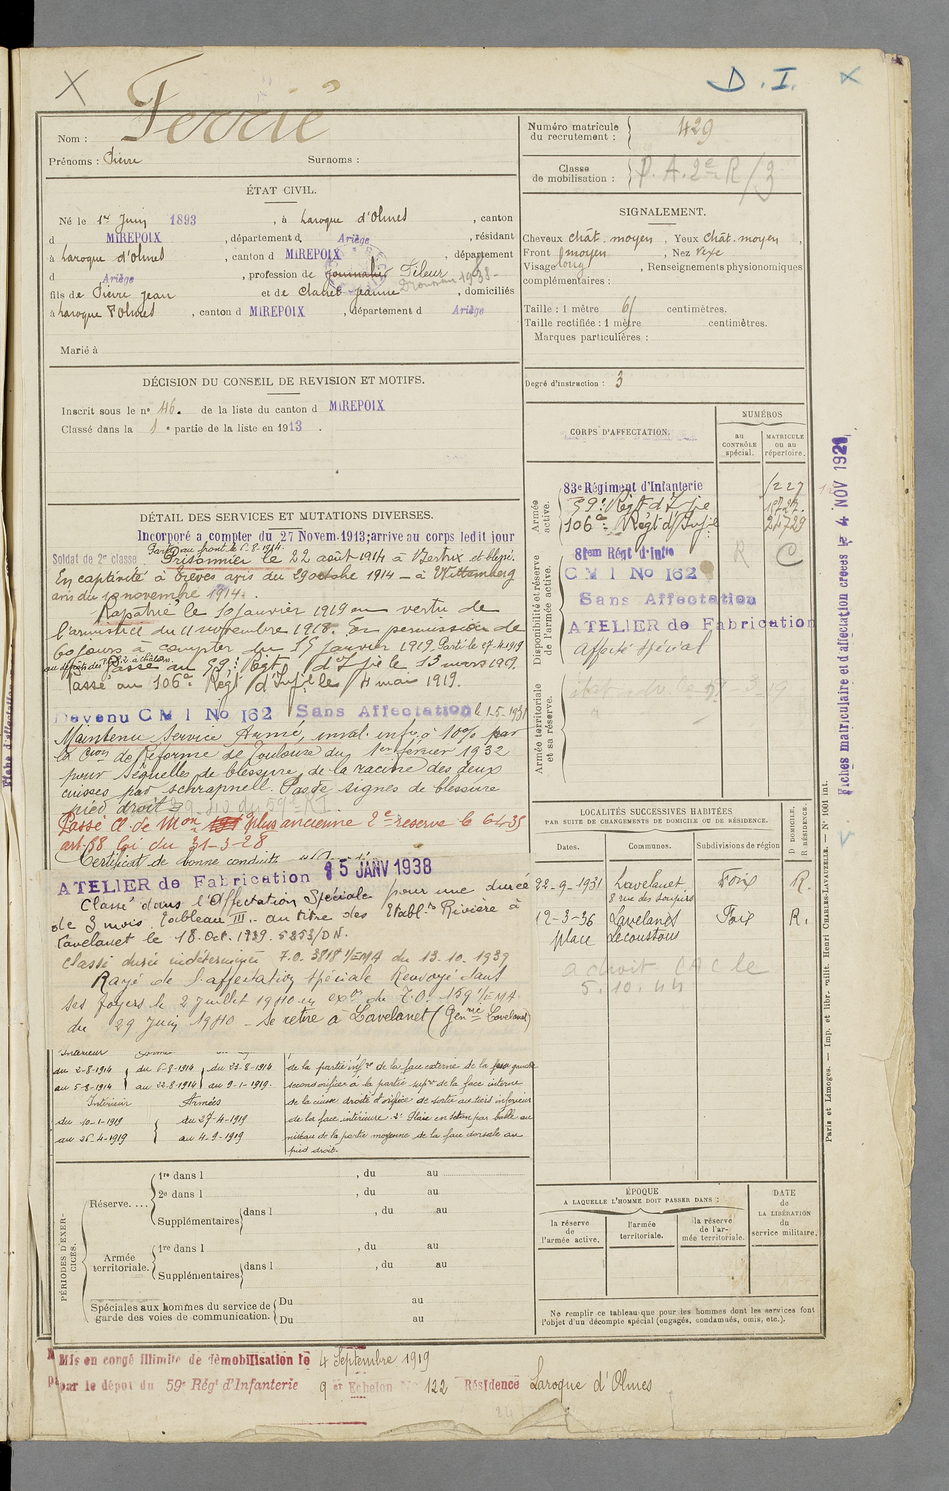 D. I.
Nom : Ferrié
Prénoms : Pierre Surnoms :
Numéro matricule du recrutement : 429
Classe de mobilisation : P. A. 2e R/3
ÉTAT CIVIL.
Né le 1er Juin 1893, à Laroque d'Olmes, canton
d MIREPOIX, département d Ariège, résidant
à Laroque d'Olmes, canton d MIREPOIX, département
d Ariège, profession de Journalier Fileur
fils de Pierre Jean et de Jeanne, domiciliés
à Laroque d'Olmes, canton d MIREPOIX, département d Ariège
Marié à
SIGNALEMENT.
Cheveux chât. moyen, Yeux chât. moyen,
Front moyen, Nez vexe
Visage long, Renseignements physionomiques
complémentaires :
Taille : 1 mètre 61 centimètres.
Taille rectifiée : 1 mètre centimètres.
Marques particulières :
Degré d'instruction : 3
DÉCISION DU CONSEIL DE REVISION ET MOTIFS.
Inscrit sous le n° 46. de la liste du canton d MIREPOIX
Classé dans la 1e partie de la liste en 1913.
CORPS D'AFFECTATION.
NUMÉROS
au CONTRÔLE spécial.
MATRICULE ou au répertoire.
Armée active.
83e Régiment d'Infanterie
59e Régt d'Infie
106e Régt d'Infie
Disponibilité et réserve de l'armée active.
81em Régt d'Infie R C
C M I No 162
Sans Affectation
ATELIER de Fabrication
Affecté spécial
Armée territoriale et sa réserve.
DÉTAIL DES SERVICES ET MUTATIONS DIVERSES.
Incorporé à compter du 27 Novem. 1913; arrive au corps ledit jour
Soldat de 2e classe Parti au front le 5.8.1914.
Prisonnier le 22 août 1914 à Bertrix et blessé.
En captivité à Trèves avis du 29 octobre 1914 — à Wittemberg
avis du 10 novembre 1914.
Rapatrié le 10 Janvier 1919 en vertu de
l'armistice du 11 novembre 1918. En permission de
60 jours à compter du 15 Janvier 1919. Parti le 27-4-1919
Passé au 59e Régt d'Infie le 13 mars 1919.
Passé au 106e Régt d'Infie le 4 mai 1919.
Devenu C M I No 162 Sans Affectation le 1-5-1931
Maintenu Service Armé, inval. infre à 10% par
la Cion de Réforme de Toulouse du 1er février 1932
pour séquelles de blessure de la racine des deux
cuisses par schrapnell. Pas de signes de blessure
pied droit
Passé Cl. de Mon plus ancienne 2e réserve le 6-4-35
art 58 loi du 31-3-28
Certificat de bonne conduite
ATELIER de Fabrication 15 JANV 1938
Classé dans l'Affectation Spéciale pour une durée
de 3 mois, tableau III. au titre des Etablts Rivière à
Lavelanet le 18. Oct. 1939. 5853/DN.
Classé durée indéterminée T.O. 3818 1/EMA du 13.10.1939
Rayé de l'affectation spéciale Renvoyé dans
ses foyers le 2 Juillet 1940 en exon du T.O. 159 1/EMA.
du 29 Juin 1940 — Se retire à Lavelanet (Genrie Lavelanet)
du 2-8-1914 du 6-8-1914 du 23-8-1914
au 5-8-1914 au 22-8-1914 au 9-1-1919.
Intérieur Armées
du 10-1-1919 du 27-4-1919
au 26-4-1919 au 4-9-1919
de la partie infre de la face externe de la fesse gauche
second orifice à la partie supre de la face interne
de la cuisse droite. Orifice de sortie au tiers inférieur
de la face intérieure. 2° Plaie en séton par balle au
niveau de la partie moyenne de la face dorsale au
pied droit.
LOCALITÉS SUCCESSIVES HABITÉES
PAR SUITE DE CHANGEMENTS DE DOMICILE OU DE RÉSIDENCE.
Dates. Communes. Subdivisions de région D DOMICILE. R RÉSIDENCE.
22-9-1931 Lavelanet Foix R.
8 rue des
12-3-36 Lavelanet Foix R.
place
a droit CAC le
5.10.44
PÉRIODES D'EXERCICES.
Réserve....
1re dans l , du au
2e dans l , du au
Supplémentaires dans l , du au
Armée territoriale.
1re dans l , du au
Supplémentaires dans l , du au
Spéciales aux hommes du service de garde des voies de communication.
Du au
Du au
ÉPOQUE
A LAQUELLE L'HOMME DOIT PASSER DANS :
la réserve de l'armée active.
l'armée territoriale.
la réserve de l'armée territoriale.
DATE de LA LIBÉRATION du service militaire.
Ne remplir ce tableau que pour les hommes dont les services font
l'objet d'un décompte spécial (engagés, condamnés, omis, etc.).
Mis en congé illimité de démobilisation le 4 Septembre 1919
par le dépôt du 59e Régt d'Infanterie 9e Echelon No 122 Résidence Laroque d'Olmes
Fiches matriculaire et d'affectation créées le 4 NOV 1921
Paris et Limoges. — Imp. et libr. milit. Henri CHARLES-LAVAUZELLE. — N° 1001 int.